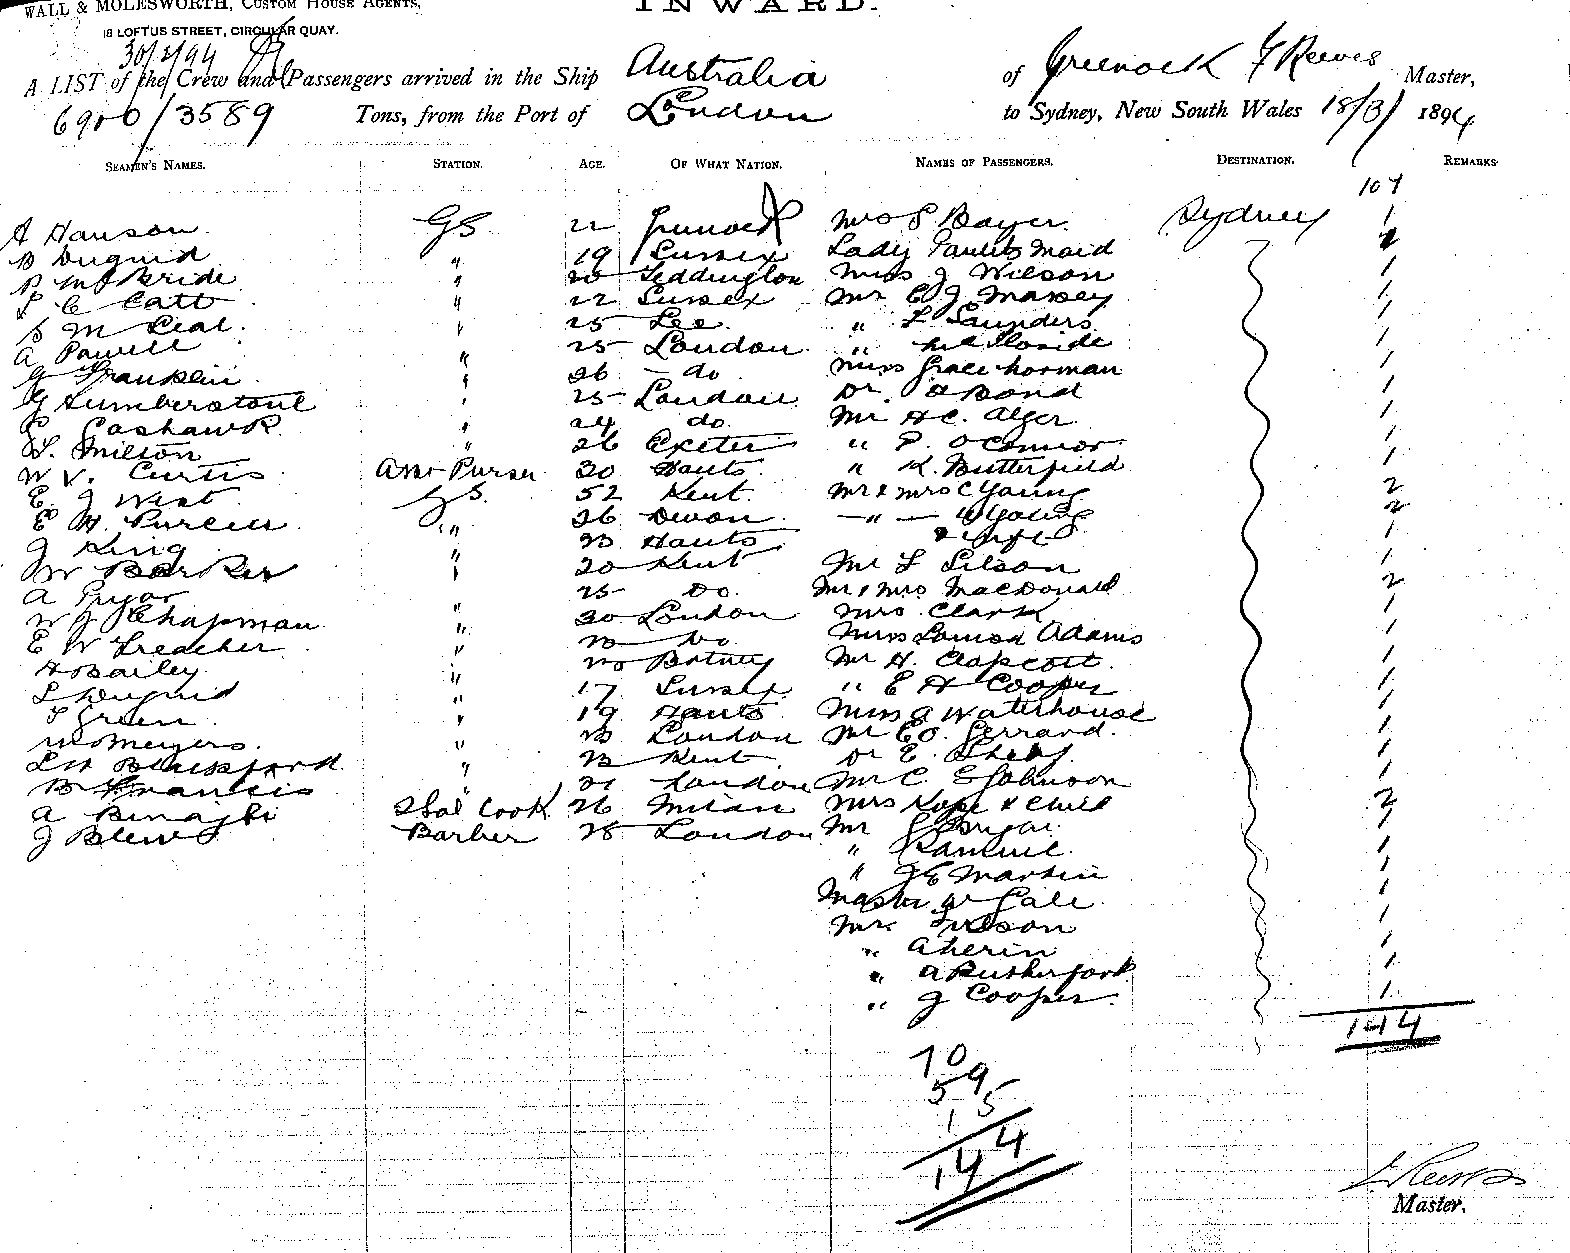 WALL & MOLESWORTH, CUSTOM HOUSE AGENTS,
INWARD.
18 LOFTUS STREET, CIRCULAR QUAY.
A LIST of the Crew and Passengers arrived in the Ship Australia of Greenock F Reeves Master,
6900/3589 Tons, from the Port of London to Sydney, New South Wales 18/3/ 1894
SEAMEN'S NAMES. STATION. AGE. OF WHAT NATION. NAMES OF PASSENGERS. DESTINATION. REMARKS
107
A Hanson GS 22 Greenock Mrs S Bayer Sydney 1
B Duguid " 19 Sussex Lady Maid
P McBride " 20 Teddington Miss J Wilson 1
C Catt " 22 Sussex Mr C J Massey 1
S M Leal. " 25 Lee. " L Saunders 1
A Powell 25 London " 1
Franklin " 26 do Miss Grace Norman 1
G Humberstone " 25 London Dr. Bond 1
Cashawk " 24 do. Mr H C. Alger 1
Milton " 26 Exeter " P. O'Connor 1
W V. Curtis Asst Purser 30 Hants " K. Butterfield 1
E. J West GS. 52 Kent. Mr & Mrs C Young 2
E H. Purcell " 26 Devon " W Young 2
J King " 23 Hants & Wife
W Barker " 20 Kent Mr L Lilson 1
A Pryor 25 Do. Mr & Mrs MacDonald 2
W J Chapman " 30 London Mrs. Clark 1
E W Treacher " Do Miss Louisa Adams 1
H Bailey " Putney Mr H. Clapcott. 1
L Duguid " 17 Sussex " E H Cooper 1
T Green " 19 Hants Miss A Waterhouse 1
Meyers. " 23 London Mr E O. Gerrard. 1
Blackford " 23 Kent Dr E. 1
B Francis " 21 London Mr C. E Johnson 1
A Binaghi Cook 26 Milan Mrs Kope & Child 2
J Blew Barber 28 London Mr 1
" 1
" J E Martin 1
Master W Gale 1
Mr. 1
" Aherin 1
" A Rutherford 1
" J Cooper 1
144
70
59
15
144
F Reeves
Master.